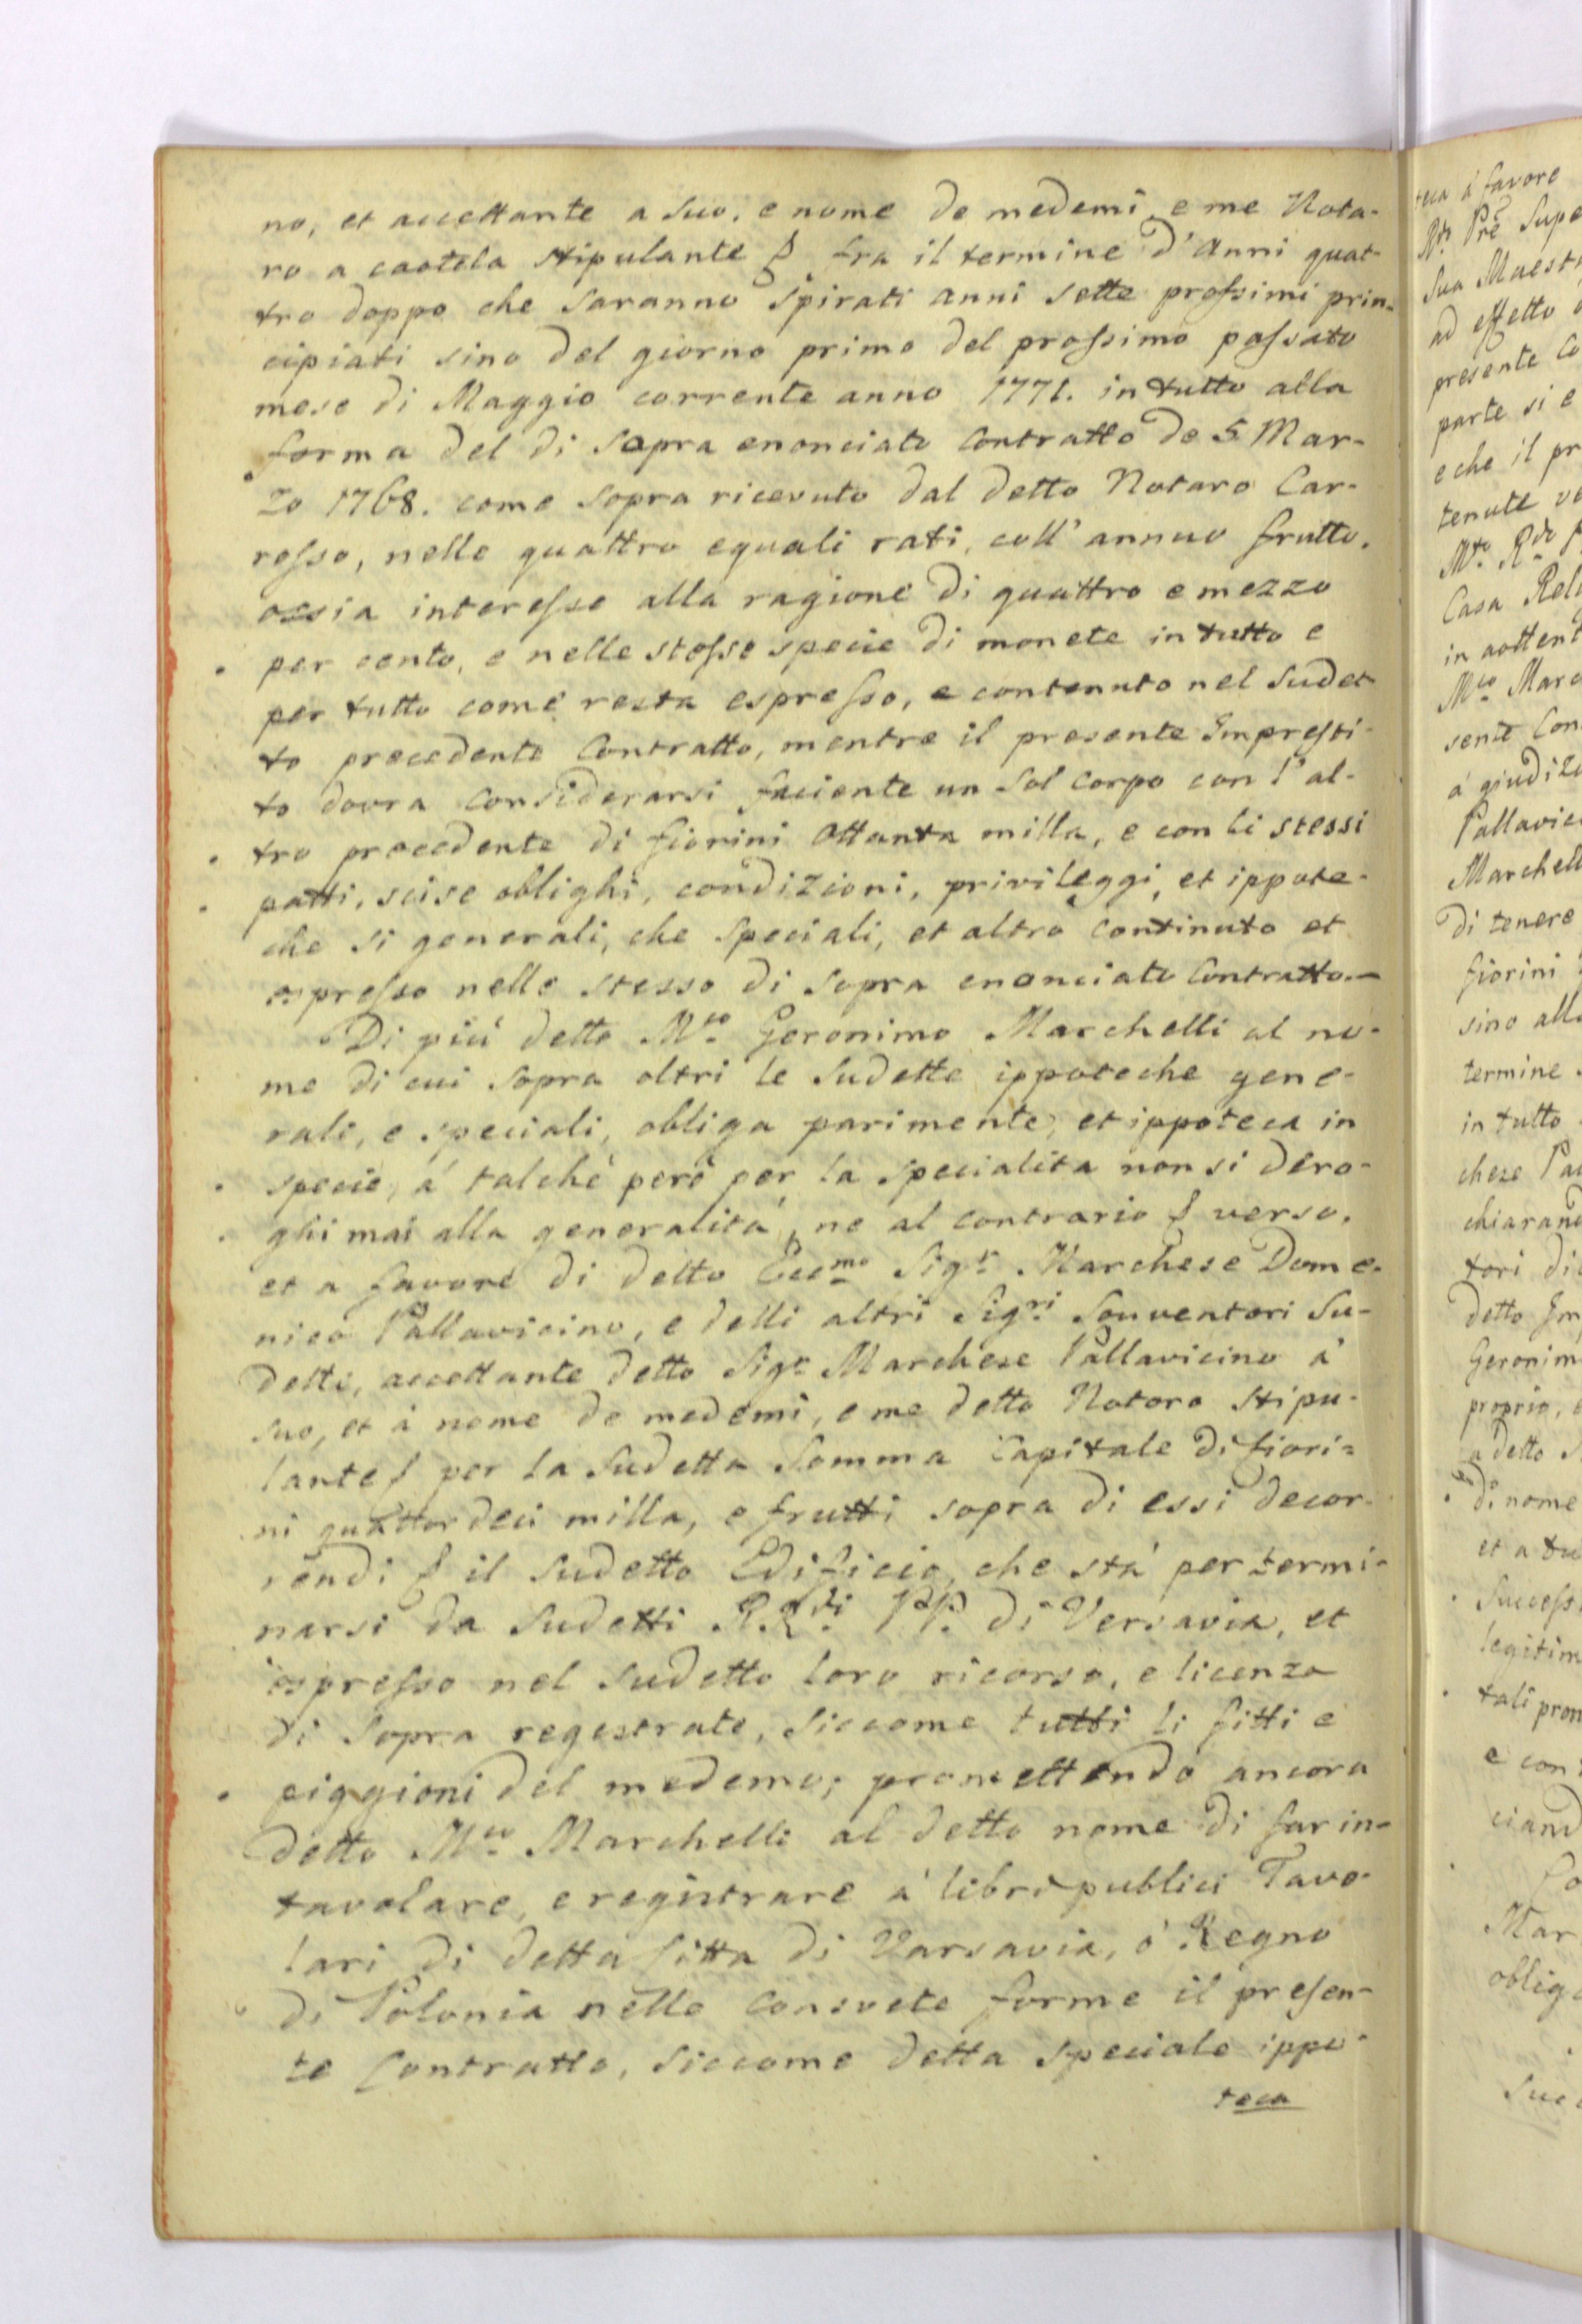 no, et accettante a suo, e nome de medemi e me Nota-
ro a caotela stipulante & fra il termine d'Anni quat-
tro doppo che saranno spirati anni sette prossimi prin-
cipiati sino del giorno primo del prossimo passato
mese di Maggio corrente anno 1771. in tutto alla
forma del di sopra enonciato Contratto de 5 Mar-
zo 1768. come sopra ricevuto dal detto Notaro Car-
rosso, nelle quattro eguali rati, coll' annuo frutto,
ossia interesse alla ragione di quattro e mezzo
per cento, e nelle stesse specie di monete in tutto e
per tutto come resta espresso, e contenuto nel sudet-
to precedente Contratto, mentre il presente Impresti-
to dovra considerarsi faciente un sol corpo con l'al-
tro procedente di fiorini Ottanta milla, e con li stessi
patti, scise oblighi, condizioni, privileggi, et ippote-
che si generali, che speciali, et altro continuto et
espresso nelle stesso di sopra enonciato Contratto.
Di più detto Mco Geronimo Marchelli al no-
me di cui sopra oltri le sudette ippoteche gene-
rali, e speciali, obliga parimente, et ippoteca in
specie, á talchè però per la specialita non si dero-
ghi mai alla generalità, ne al contrario & verso,
et a favore di detto Eccmo Sigr Marchese Dome-
nico Pallavicino, e delli altri Sigri Souventori su-
detti, accettante detto Sigr Marchese Pallavicino à
suo, et à nome de medemi, e me detto Notaro stipu-
lante & per la sudetta Somma Capitale di fiori=
ni quattordeci milla, e frutti sopra di essi decor-
rendi & il sudetto Edificio, che stá per termi-
narsi da sudetti R.Rdi PP. di Versavia, et
espresso nel sudetto loro ricorso, e licenza
di sopra regestrate, siccome tutti li fitti e
piggioni del medemo; promettendo ancora
detto Mco Marchelli al detto nome di far in-
tavolare, e registrare á libri publici Tavo-
lari di detta Città di Varsavia, ó Regno
di Polonia nelle consuete forme il presen-
te Contratto, siccome detta speciale ippo-
teca
teca á favore
Rdi Pre Supe
Sua Maest
ad effetto
presente Co
parte si e
e che il pr
tenute ve
Mto Rdo P
Casa Reli
in
Mco Marc
sente Con
á giudizi
Pallavici
Marchell
di tenere
fiorini
sino all
termine
in tutto
chese Pal
chiarand
tori di
detto Im
Geronim
proprio, e
a detto S
di nome
et a tu
Success
legitim
tali prom
e con
ciand
Co
Mar
oblig
Succ